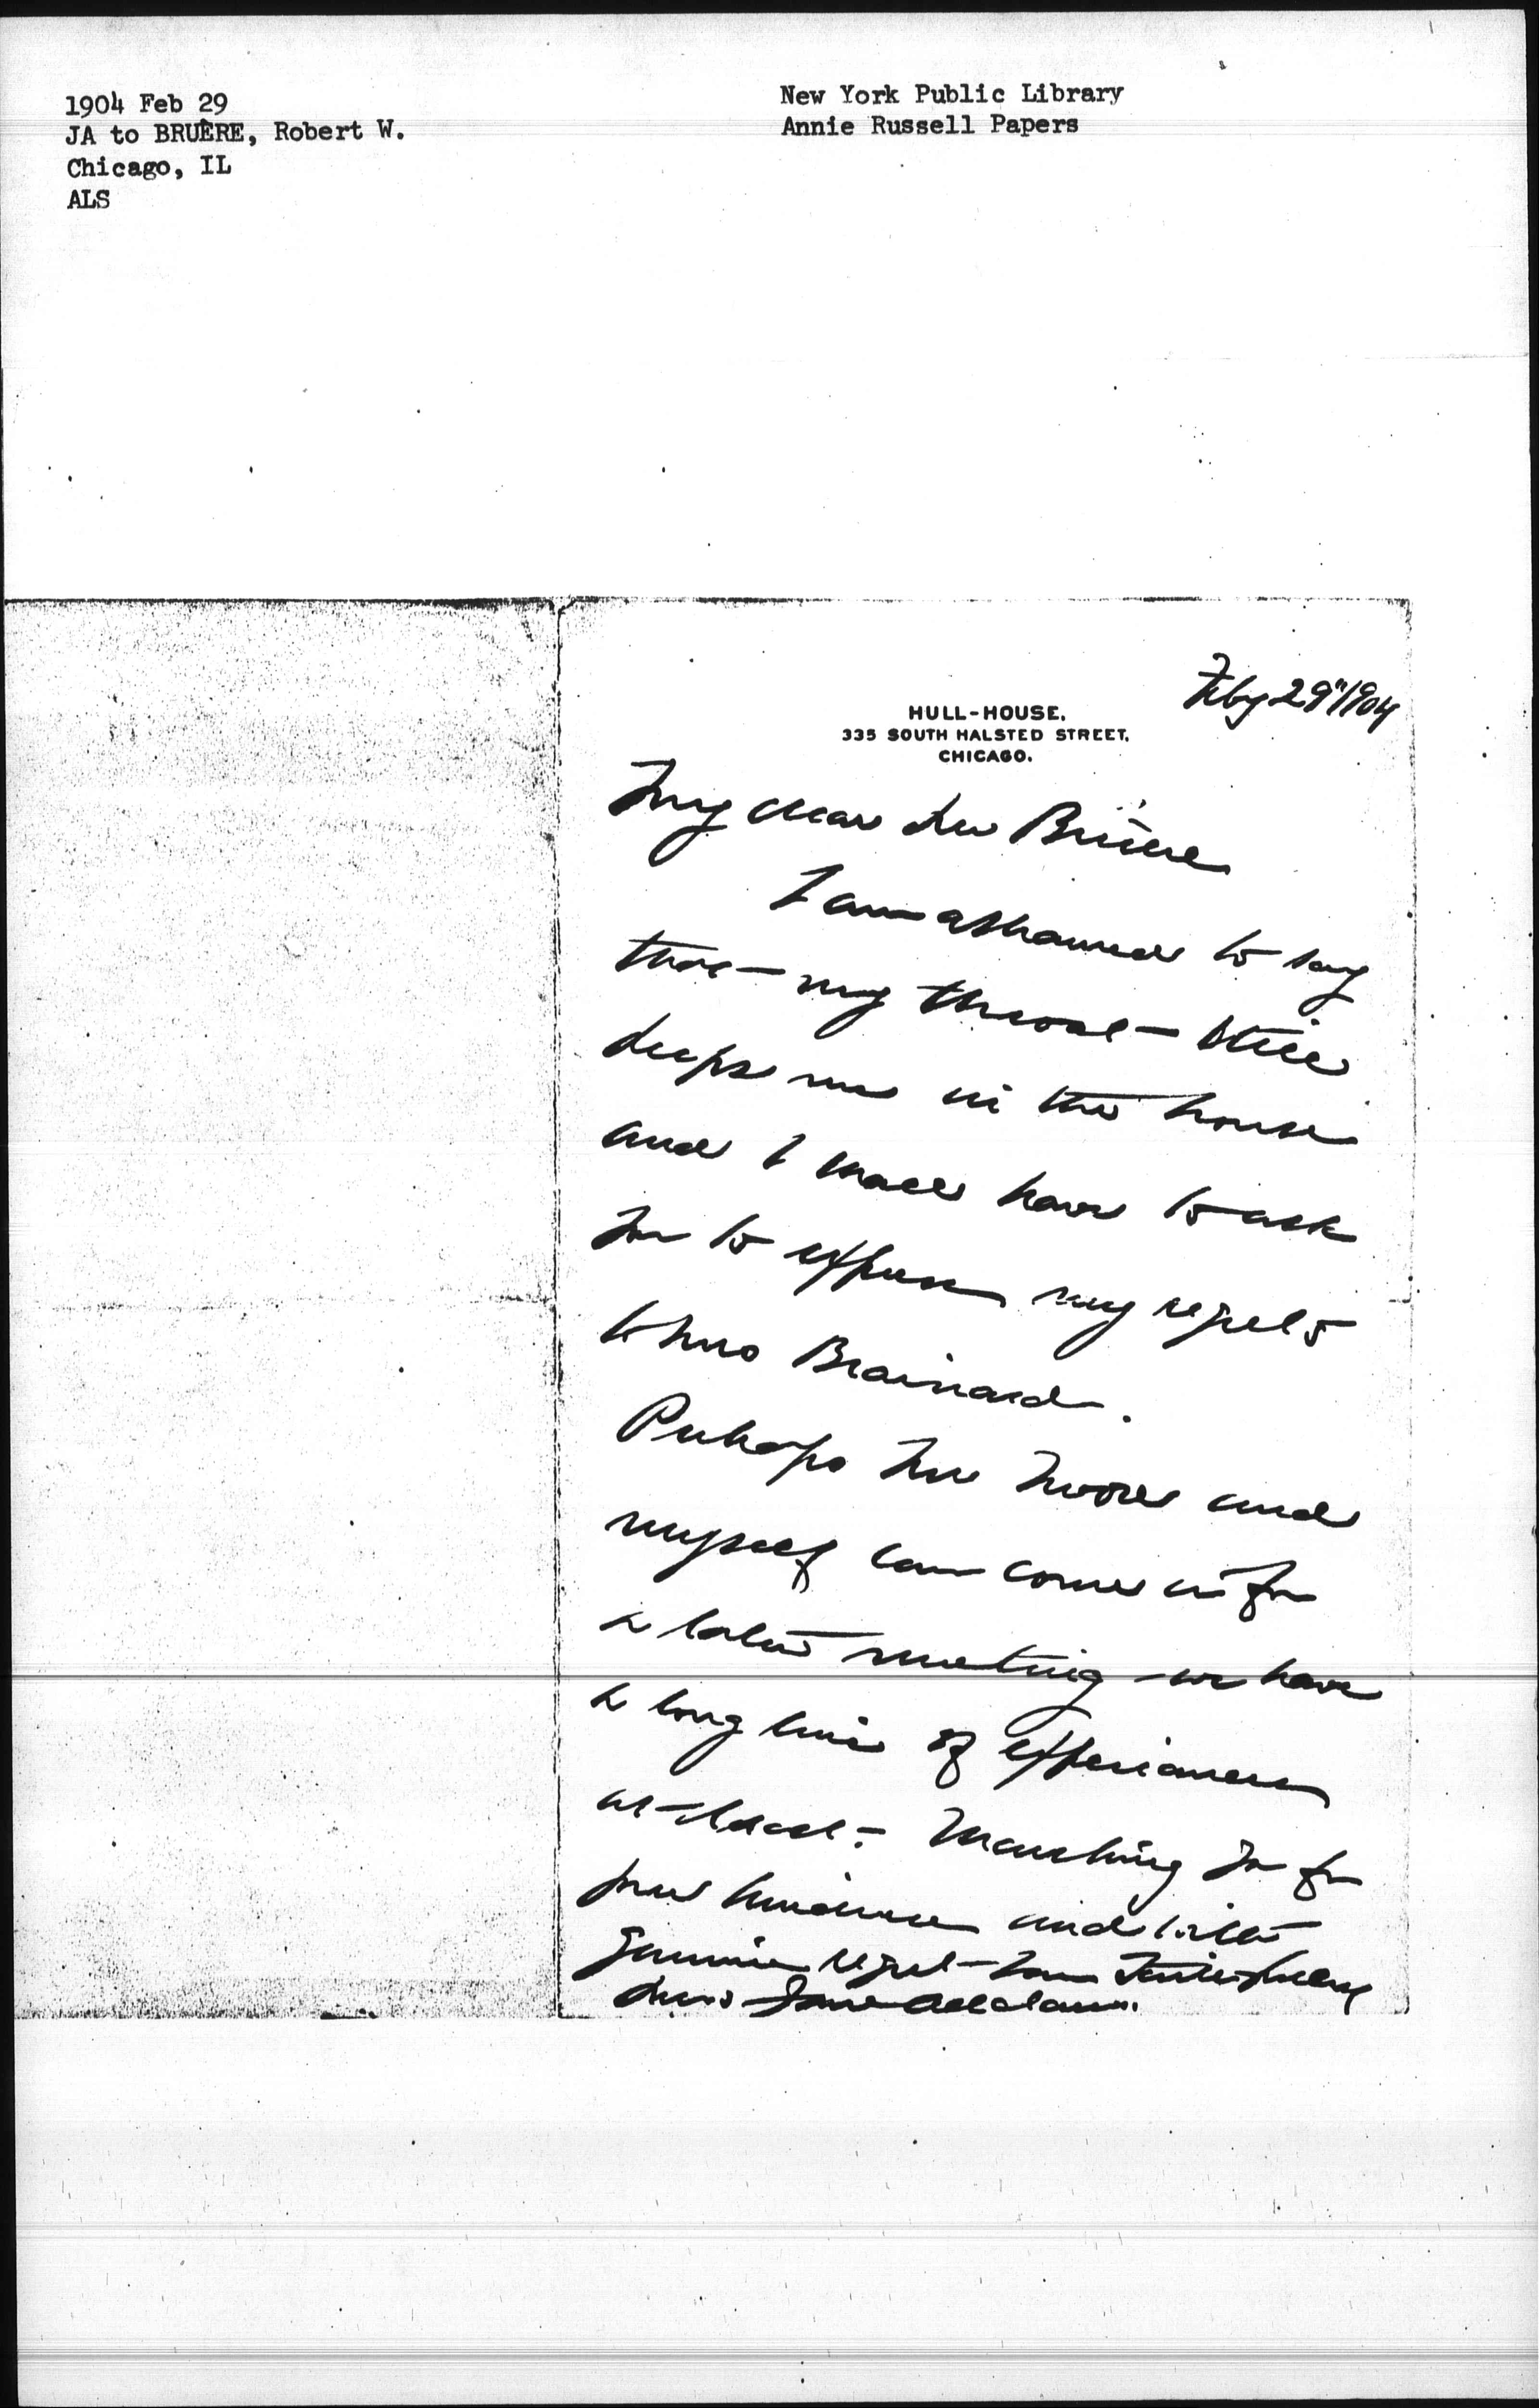 1904 Feb 29
JA to BRUÈRE, Robert W.
Chicago, IL
ALS
New York Public Library
Annie Russell Papers
Feby 29" 1904
HULL-HOUSE,
335 SOUTH HALSTED STREET,
CHICAGO.
My dear Mr Bruere
I am ashamed to say
that my throat still
keeps me in the house
and I shall have to ask
you to express my regrets
to Mrs Brainard.
Perhaps Mr Moore and
myself can come in for
a later meeting - we have
a long line of experiences
at least. Thanking you for
your kindness and with
genuine regret I am faithfully
yours Jane Addams.